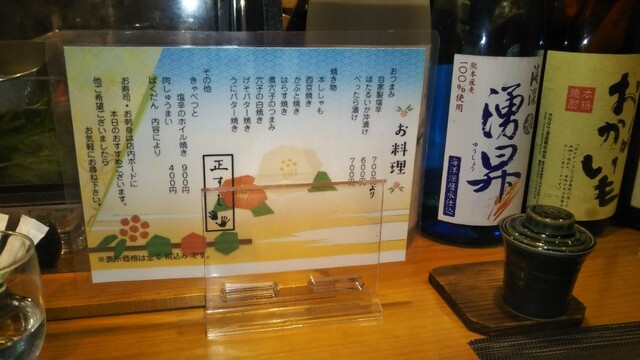 お料理
おつまみ
自家製塩辛 700円より
ほたるいか沖漬け 600円
べったら漬け 700円
焼き物
本ししゃも
西京焼き
かぶと焼き
はらす焼き
煮穴子のつまみ
穴子の白焼き
げそバター焼き
うにバター焼き
その他
きゃべつと
塩辛のホイル焼き 900円
肉しゅうまい 400円
ばくだん 内容により
お寿司・お刺身は店内ボードに
本日のおすすめございます。
他ご希望ございましたら
お気軽にお尋ね下さい。
正すし
※表示価格は全て税込みです。
熊本産麦
100%使用
湧昇
ゆうしょう
海洋深層水仕込
本格
焼酎
おかがいも